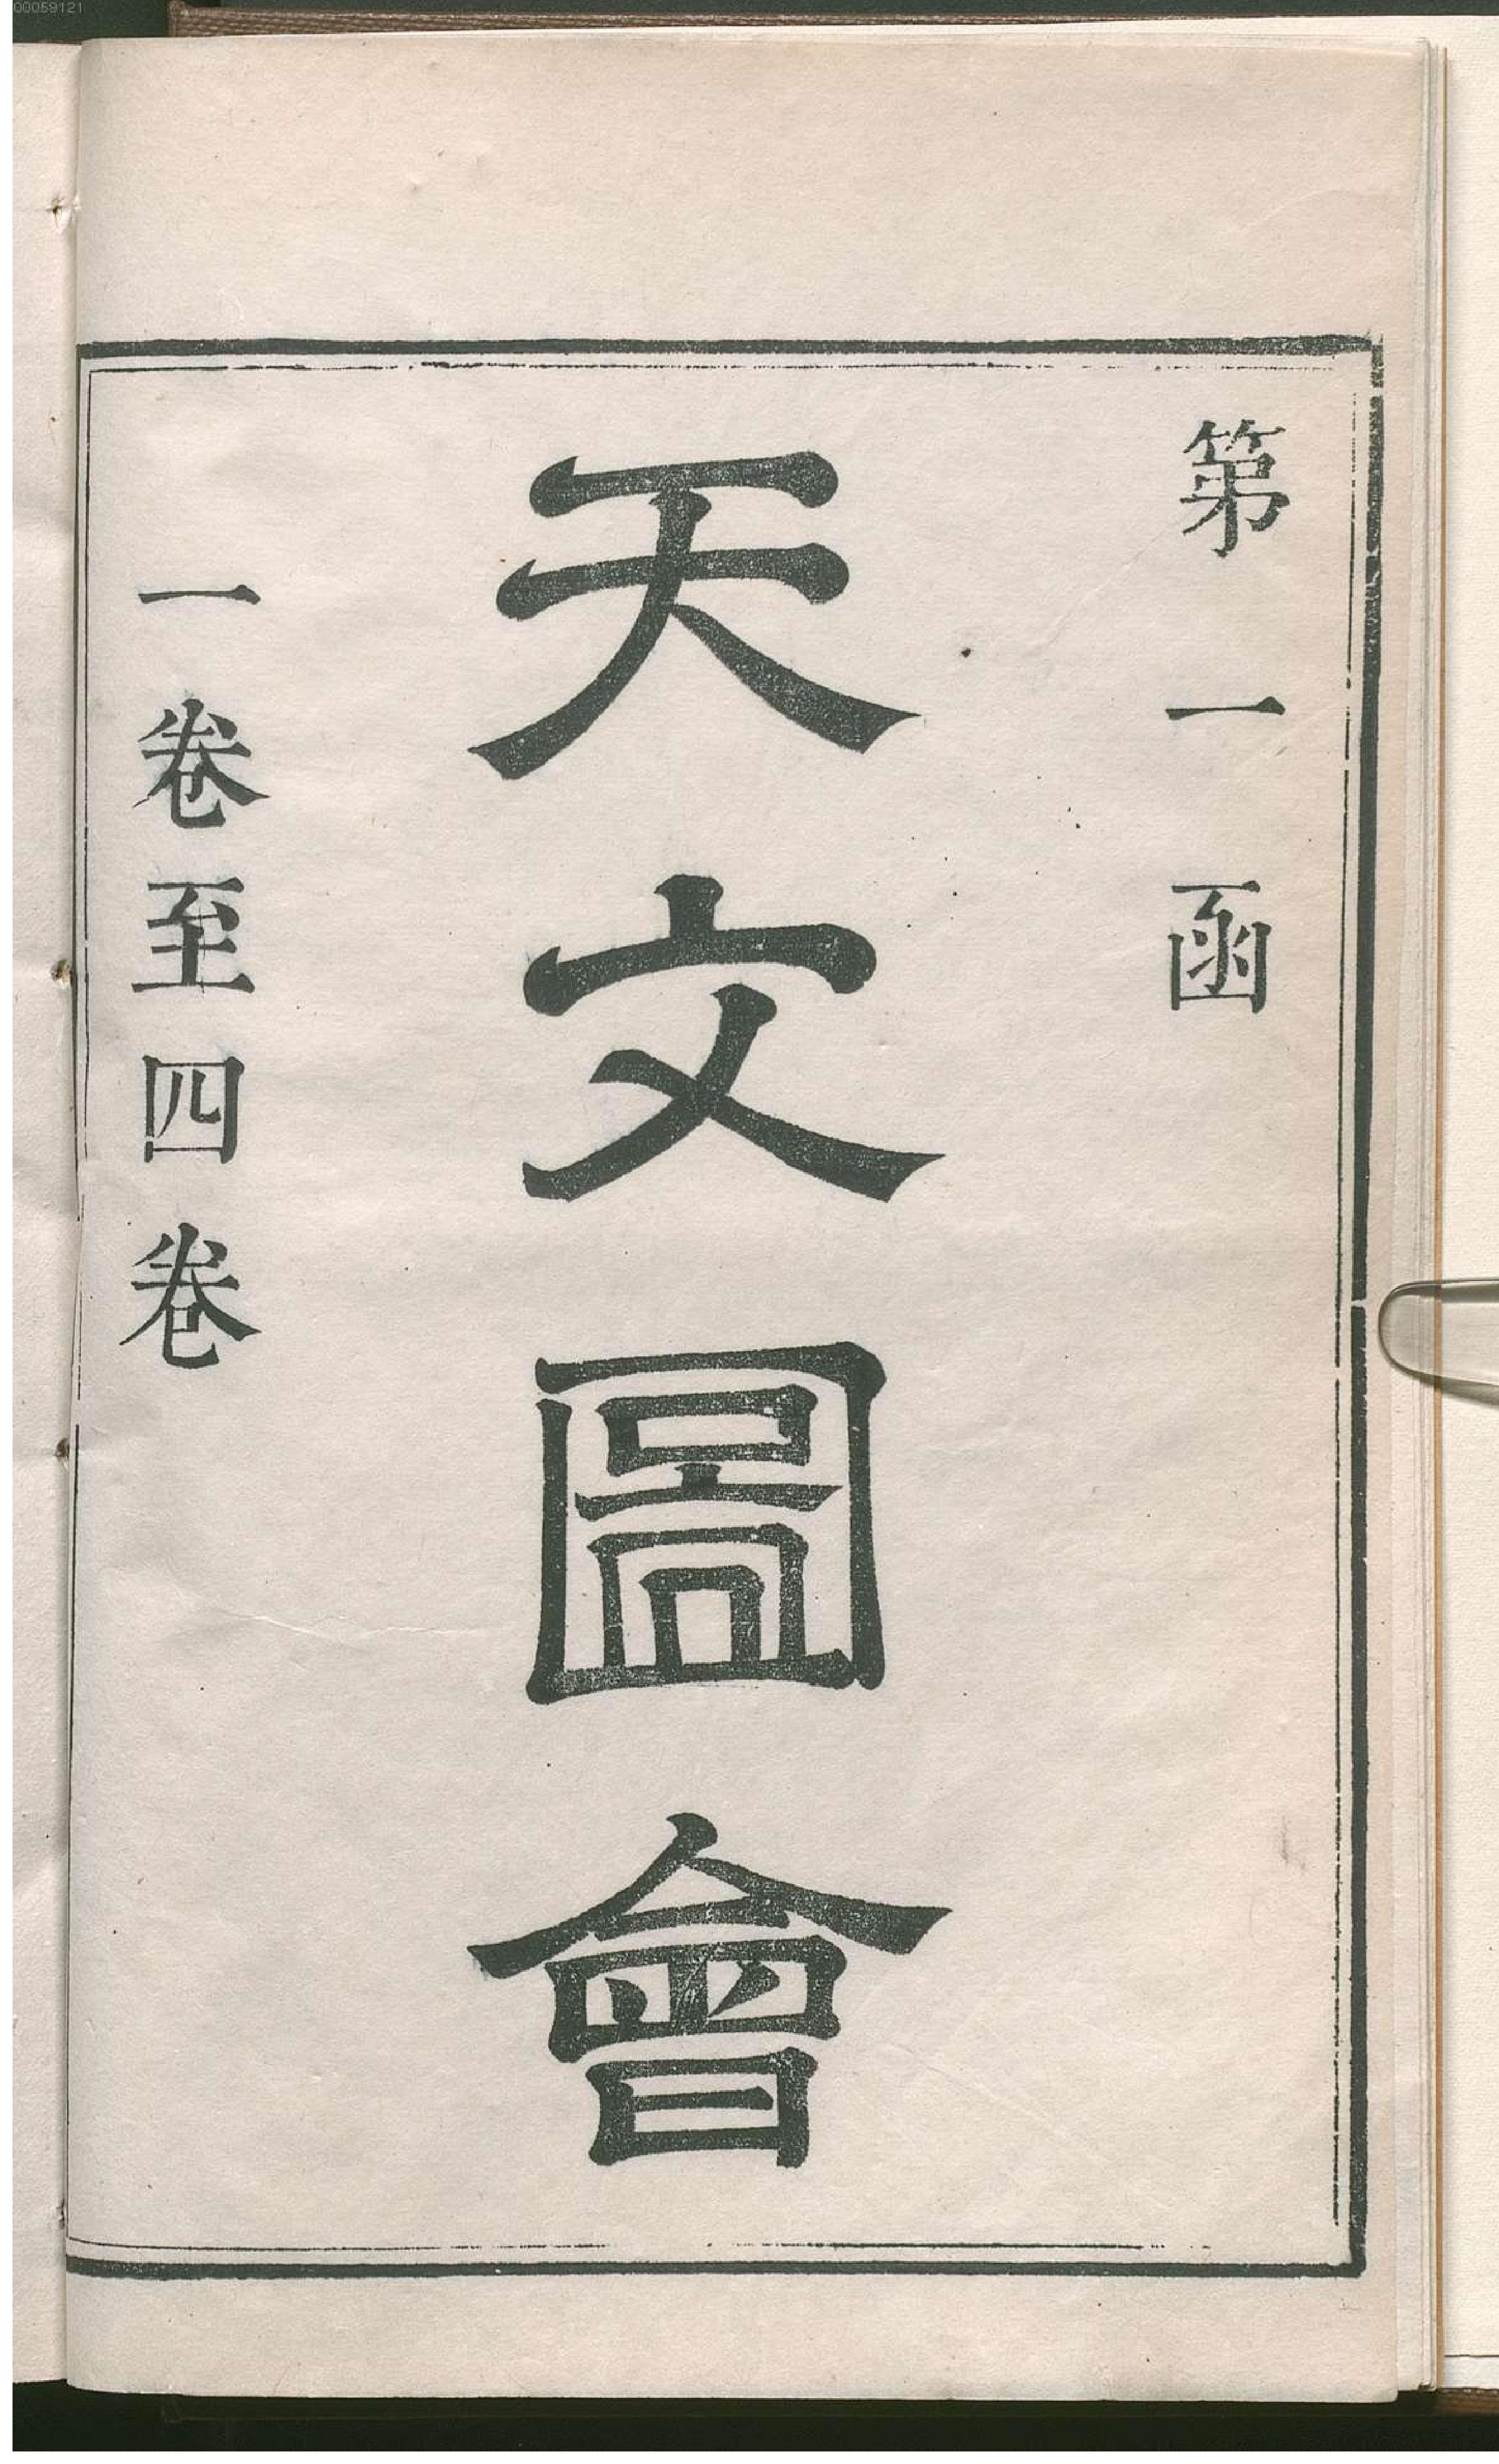 00059121
第一函
天文圖會
一卷至四卷